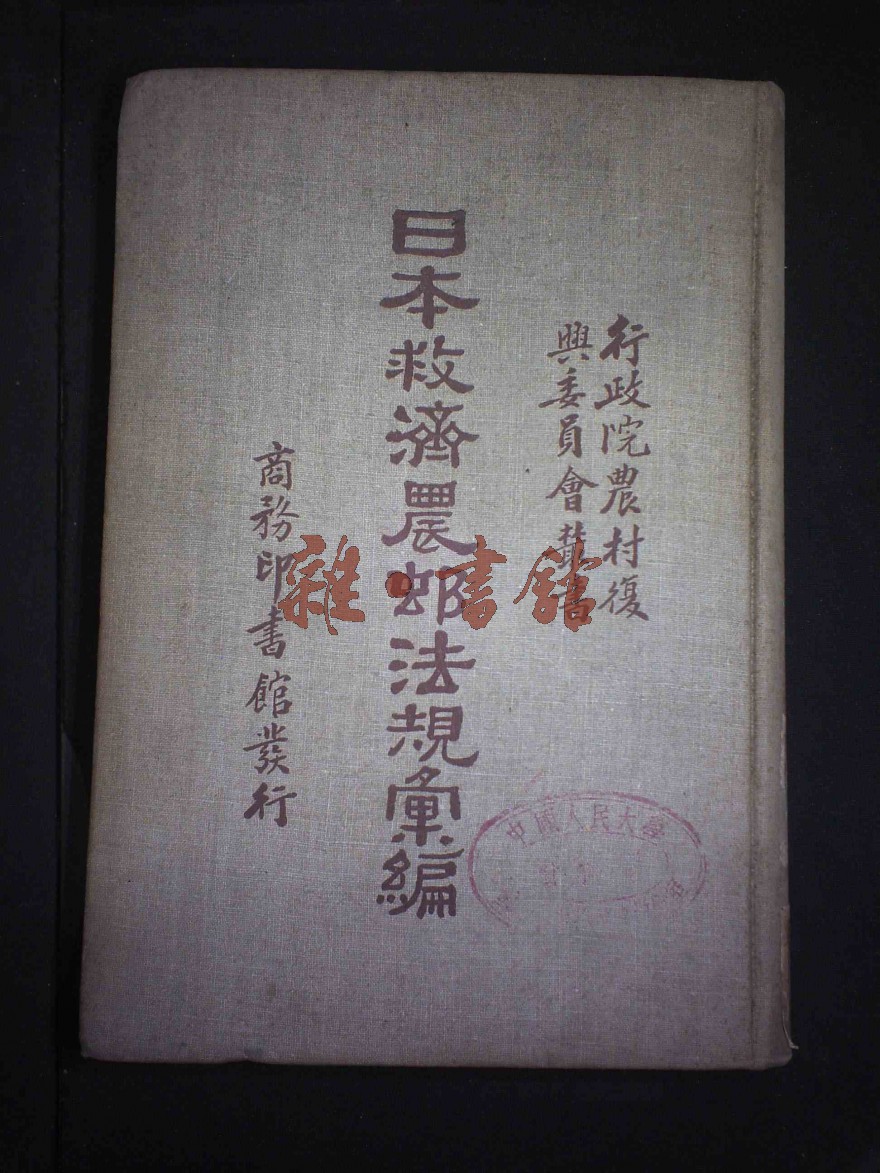 行政院農村復
興委員會叢書
日本救濟農邨法規彙編
商務印書館發行
雜·書館
中國人民大學